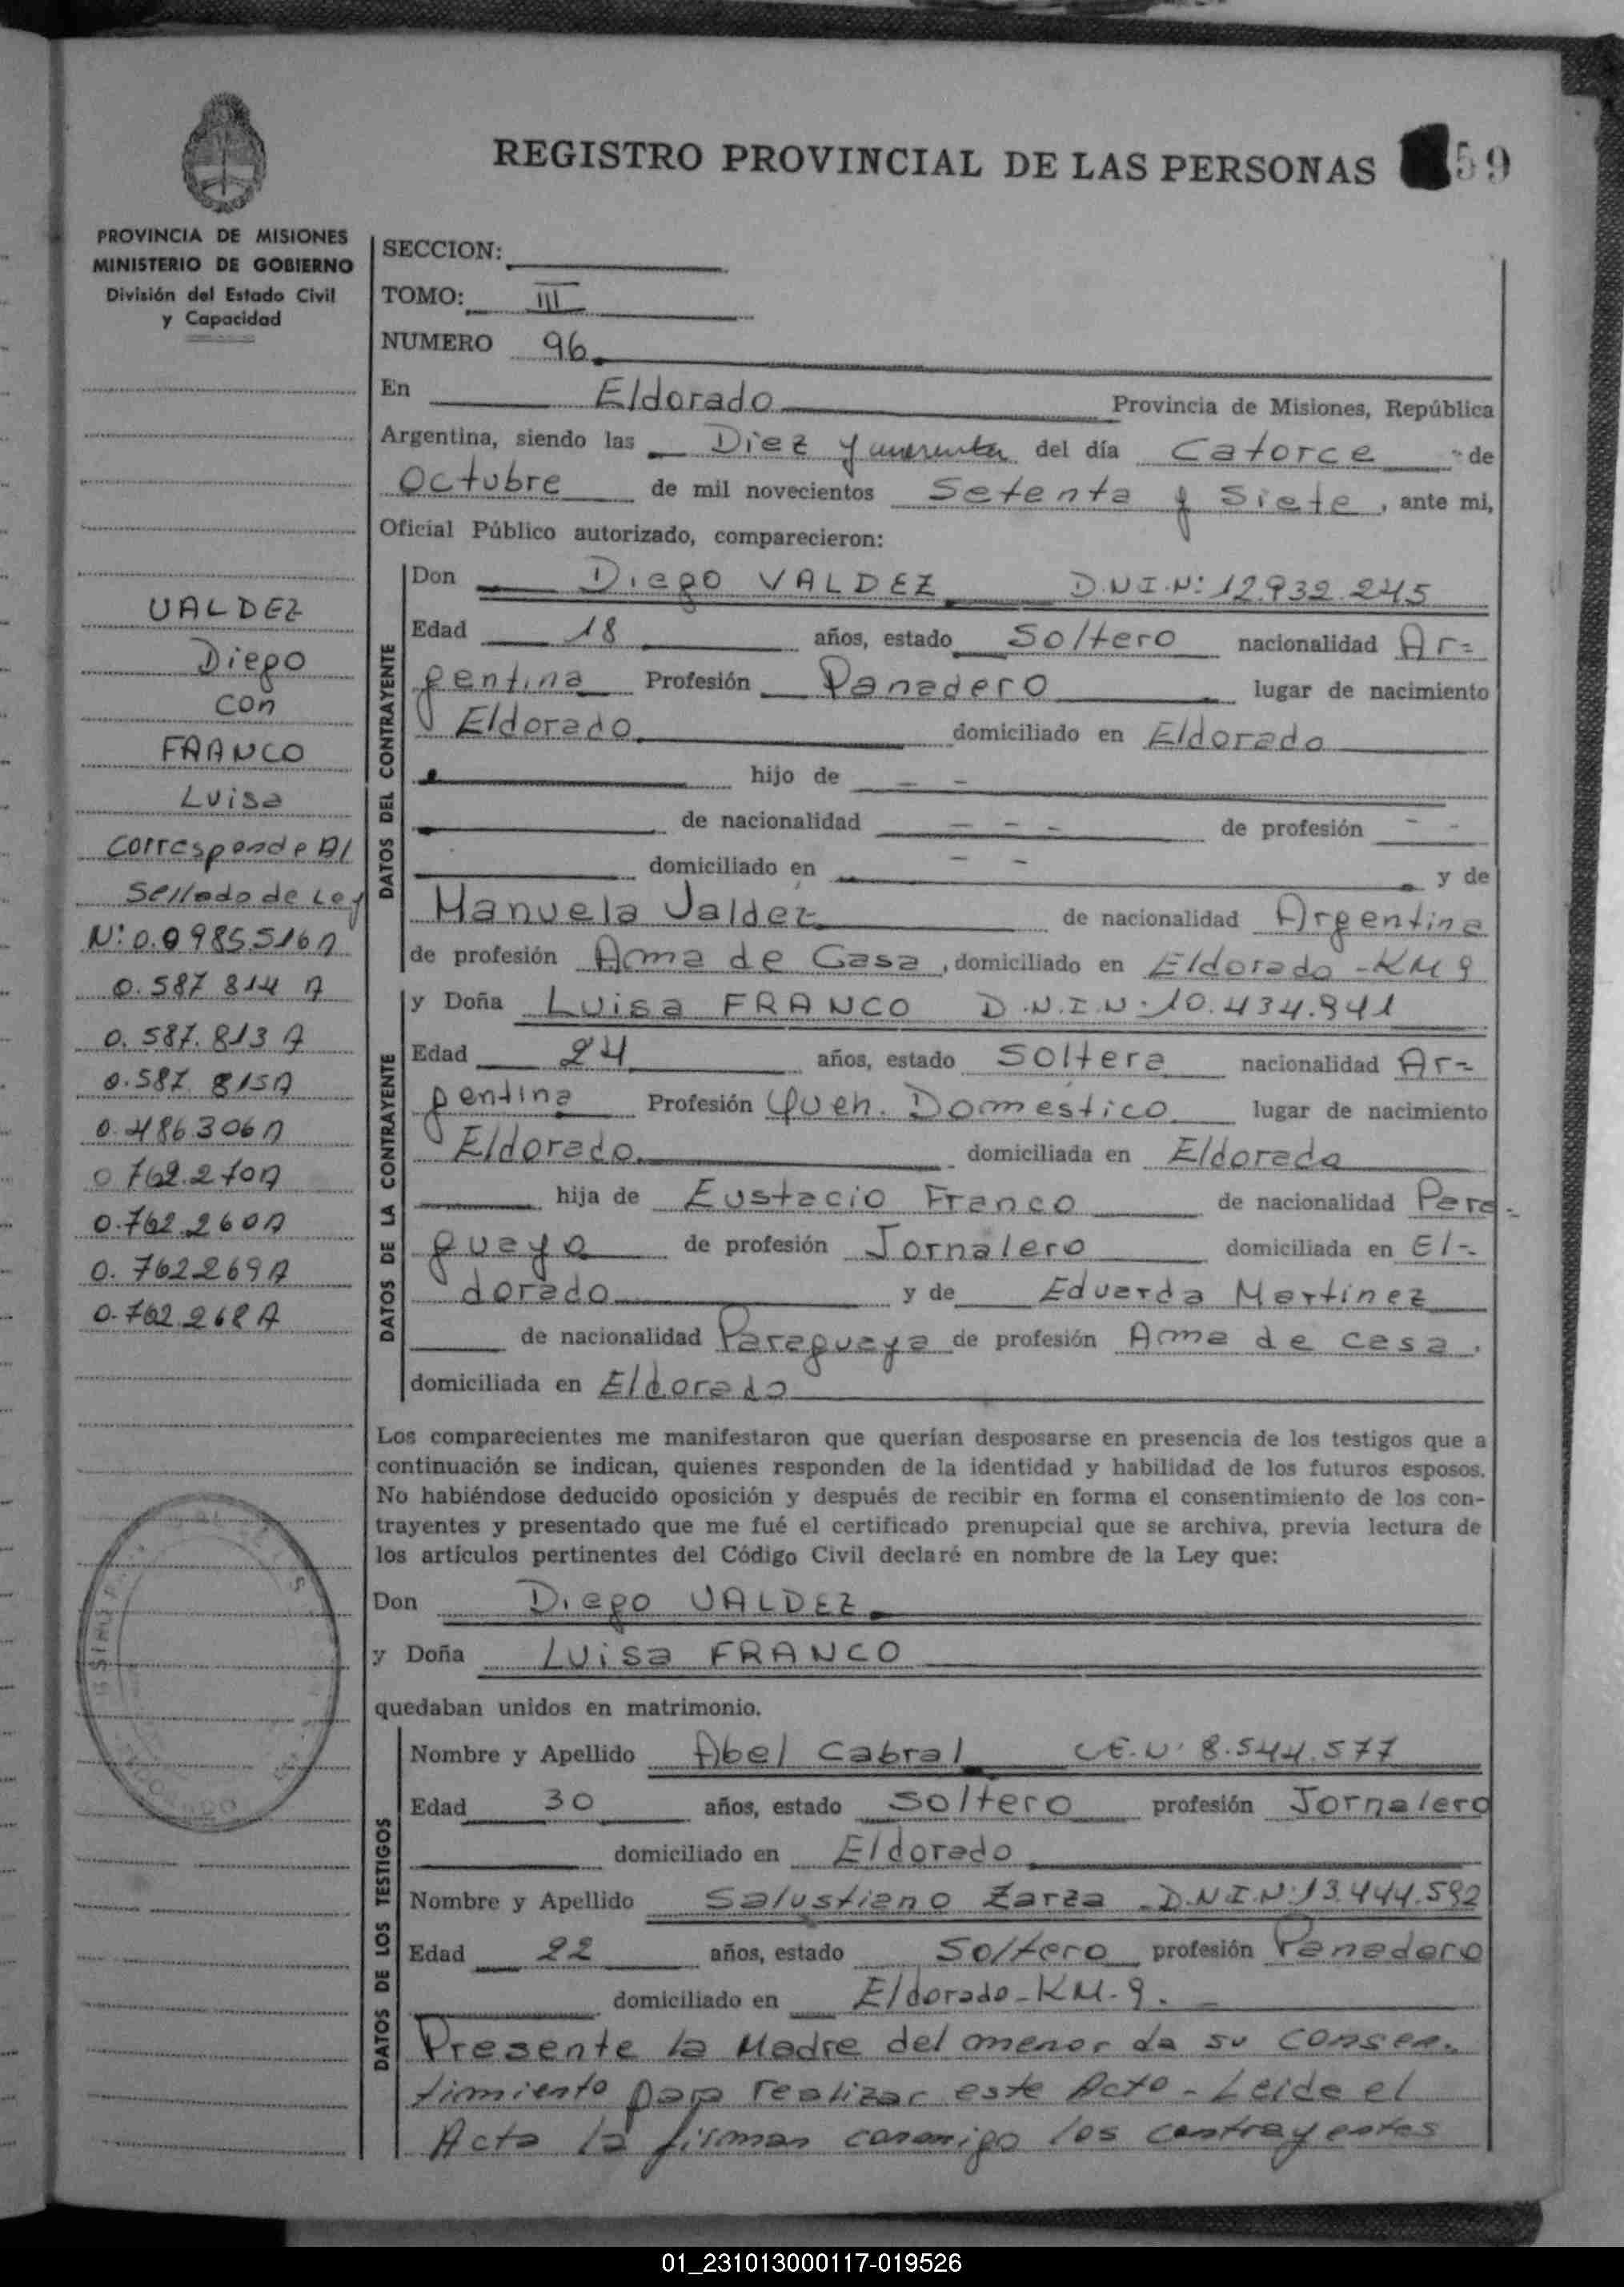 REGISTRO PROVINCIAL DE LAS PERSONAS 59
PROVINCIA DE MISIONES
MINISTERIO DE GOBIERNO
División del Estado Civil
y Capacidad
VALDEZ
Diego
con
FRANCO
Luisa
Corresponde Al
Sellado de Ley
N: 0.0985516A
0.587 814 A
0.587.813 A
0.587 815A
0.486306A
0 762.270A
0.762.260A
0.762269A
0.762.268A
SECCION:
TOMO: III
NUMERO 96
En Eldorado Provincia de Misiones, República
Argentina, siendo las Diez y cuarenta del día Catorce de
Octubre de mil novecientos Setenta y Siete, ante mi,
Oficial Público autorizado, comparecieron:
DATOS DEL CONTRAYENTE
Don Diego VALDEZ D.N.I.N: 12.932.245
Edad 18 años, estado Soltero nacionalidad Ar=
gentina Profesión Panadero lugar de nacimiento
Eldorado domiciliado en Eldorado
hijo de - -
de nacionalidad - - - de profesión - -
domiciliado en - - y de
Manuela Valdez de nacionalidad Argentina
de profesión Ama de Casa, domiciliado en Eldorado - KM 9
DATOS DE LA CONTRAYENTE
y Doña Luisa FRANCO D.N.I.N. 10.434.941
Edad 24 años, estado Soltera nacionalidad Ar-
gentina Profesión Queh. Domestico lugar de nacimiento
Eldorado domiciliada en Eldorado
hija de Eustacio Franco de nacionalidad Para-
guaya de profesión Jornalero domiciliada en El-
dorado y de Eduarda Martinez
de nacionalidad Paraguaya de profesión Ama de casa.
domiciliada en Eldorado
Los comparecientes me manifestaron que querían desposarse en presencia de los testigos que a
continuación se indican, quienes responden de la identidad y habilidad de los futuros esposos.
No habiéndose deducido oposición y después de recibir en forma el consentimiento de los con-
trayentes y presentado que me fué el certificado prenupcial que se archiva, previa lectura de
los artículos pertinentes del Código Civil declaré en nombre de la Ley que:
Don Diego VALDEZ
y Doña Luisa FRANCO
quedaban unidos en matrimonio.
DATOS DE LOS TESTIGOS
Nombre y Apellido Abel Cabral C.E.N. 8.544.577
Edad 30 años, estado Soltero profesión Jornalero
domiciliado en Eldorado
Nombre y Apellido Salustiano Zarza D.N.I.N: 13.444.592
Edad 22 años, estado Soltero profesión Panadero
domiciliado en Eldorado - KM - 9.
Presente la Madre del menor da su consen-
timiento para realizar este Acto - Leida el
Acta la firman conmigo los contrayentes
01_231013000117-019526